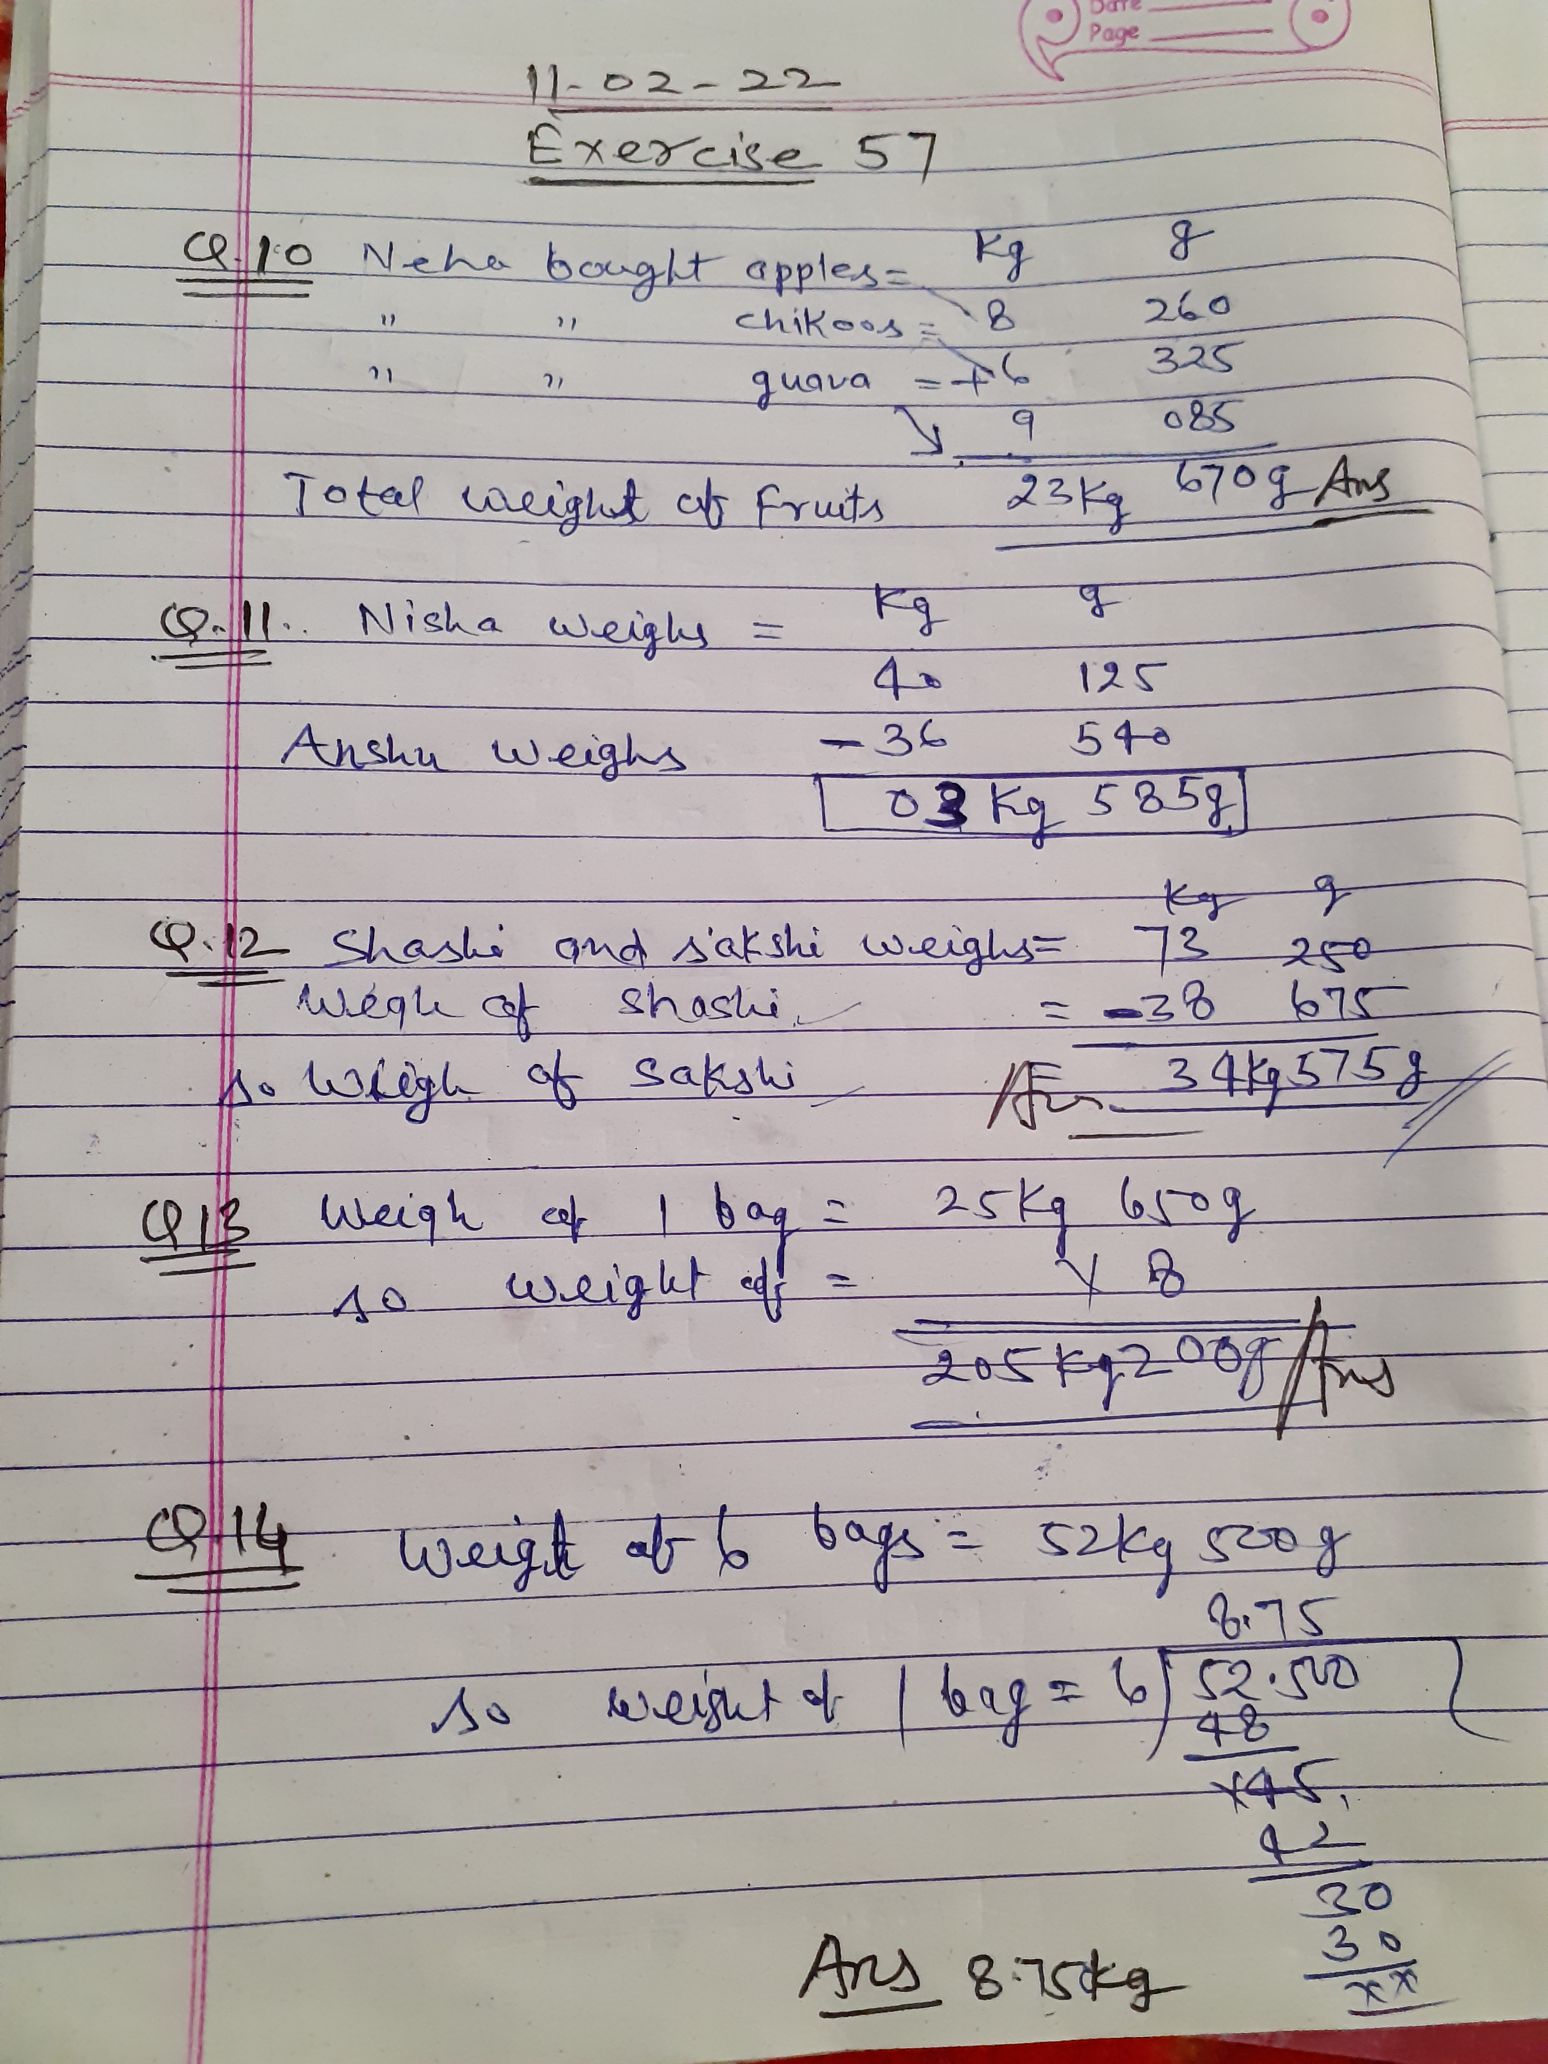 Date
Page
11-02-22
Exercise 57
Q.10 Neha bought apples= Kg g
" " chikoos = 8 260
" " guava = + 6 325
9 085
Total weight of fruits 23Kg 670g Ans
Q.11.. Nisha weighs = Kg g
40 125
Anshu weighs - 36 540
03 Kg 585g
Kg g
Q.12 Shashi and sakshi weighs= 73 250
Weigh of Shashi = -38 675
so Weigh of Sakshi Ans 34Kg 575g
Q13 Weigh of 1 bag = 25Kg 650g
so weight of = x 8
205Kg 200g Ans
Q.14 Weight of 6 bags = 52Kg 500g
8.75
so weight of 1 bag = 6) 52.500 (
48
x45
42
30
30
xx
Ans 8.75kg